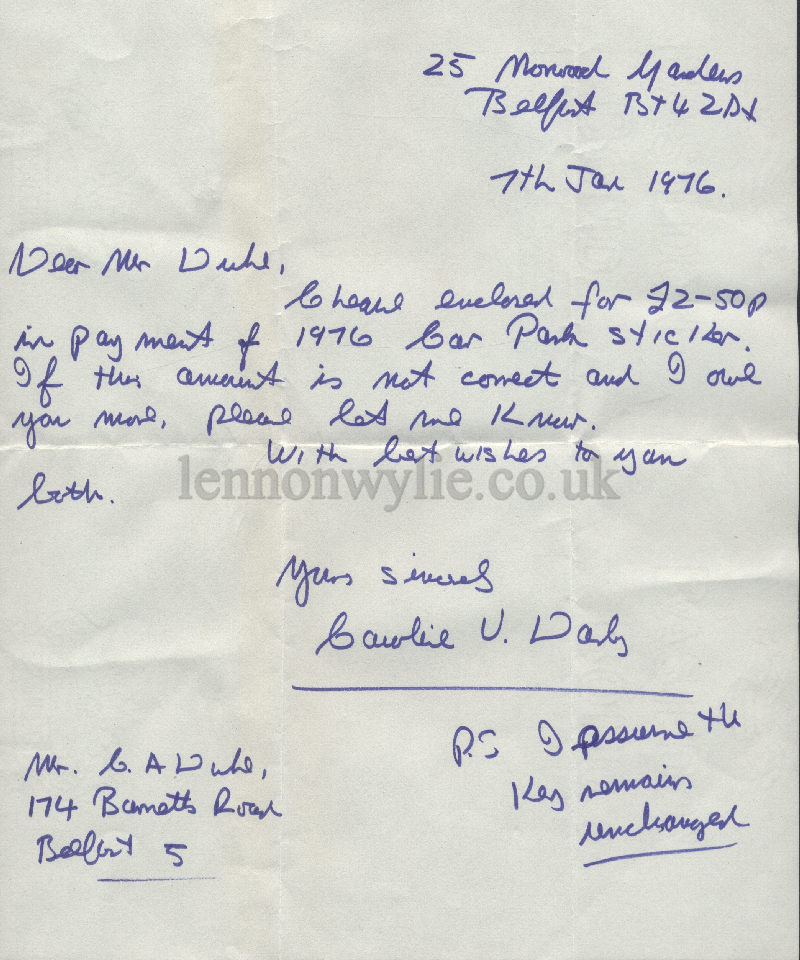 25 Norwood Gardens
Belfast BT4 2DX
7th Jan 1976.
Dear Mr Duke,
Cheque enclosed for £2-50p
in payment of 1976 Car Park sticker.
If this amount is not correct and I owe
you more, please let me know.
With best wishes to you
both.
lennonwylie.co.uk
Yours sincerely
Caroline V. Darby
P.S I assume the
Key remains
unchanged
Mr. C. A Duke,
174 Barnetts Road
Belfast 5